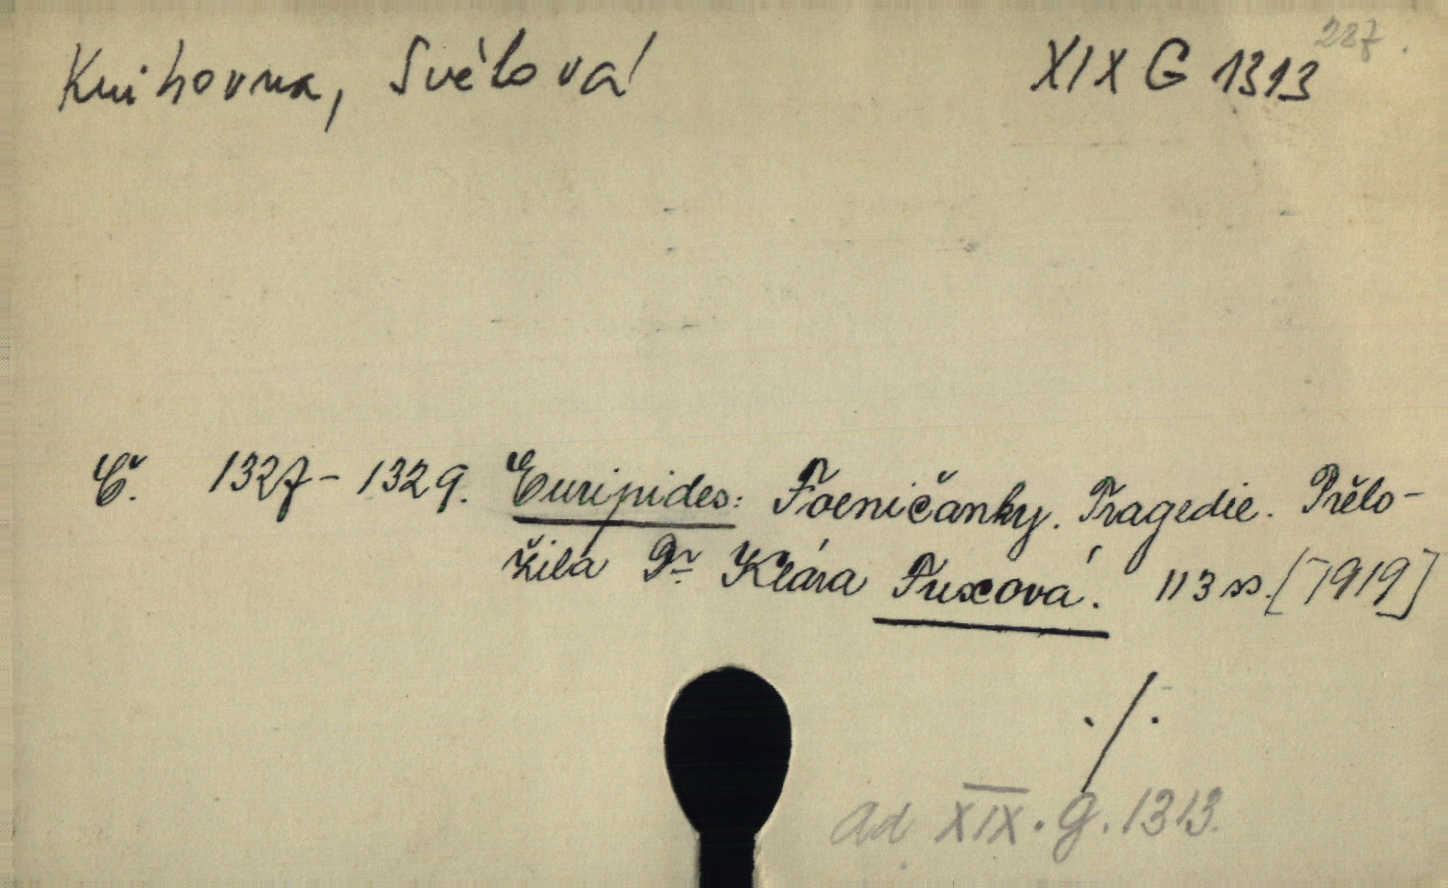 Knihovna, Světová XIX G 1313 227.
Č. 1327-1329. Euripides: Foeničanky. Tragedie. Přelo-
žila Dr Klára Fuxová. 113 ss. [1919]
./.
ad XIX. g. 1313.